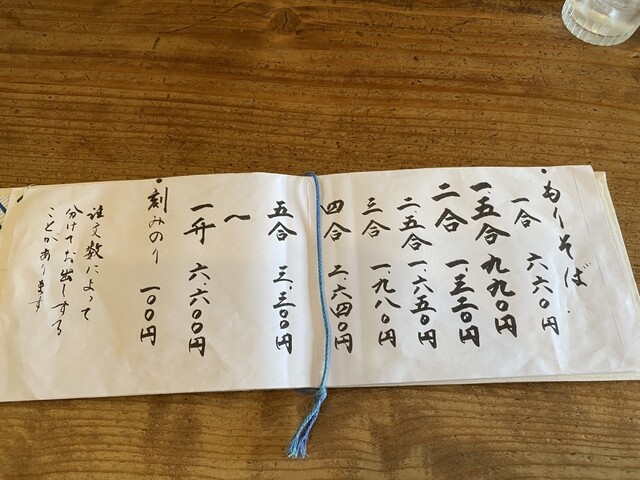 ・もりそば
一合 六六〇円
一.五合 九九〇円
二合 一.三二〇円
二.五合 一.六五〇円
三合 一.九八〇円
四合 二.六四〇円
五合 三.三〇〇円
〜
一升 六.六〇〇円
・刻みのり 一〇〇円
注文数によって
分けてお出しする
ことがあります